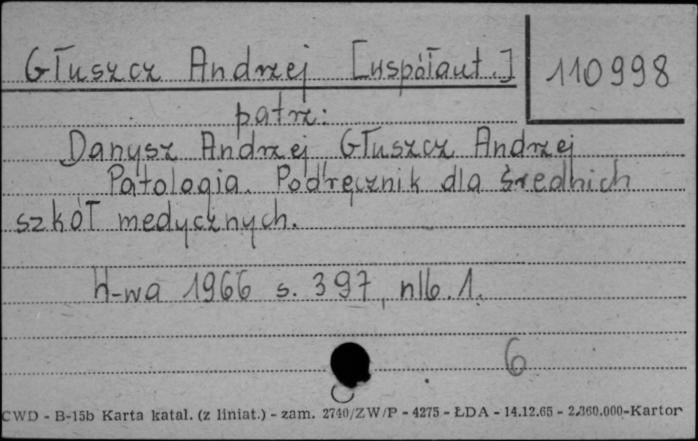 Głuszcz Andrzej [współaut.] 110998
patrz:
Danysz Andrzej Głuszcz Andrzej
Patologia. Podręcznik dla średnich
szkół medycznych.
W-wa 1966 s. 397, nlb. 1.
6
CWD - B-15b Karta katal. (z liniat.) - zam. 2740/ZW/P - 4275 - ŁDA - 14.12.65 - 2.360.000-Karton